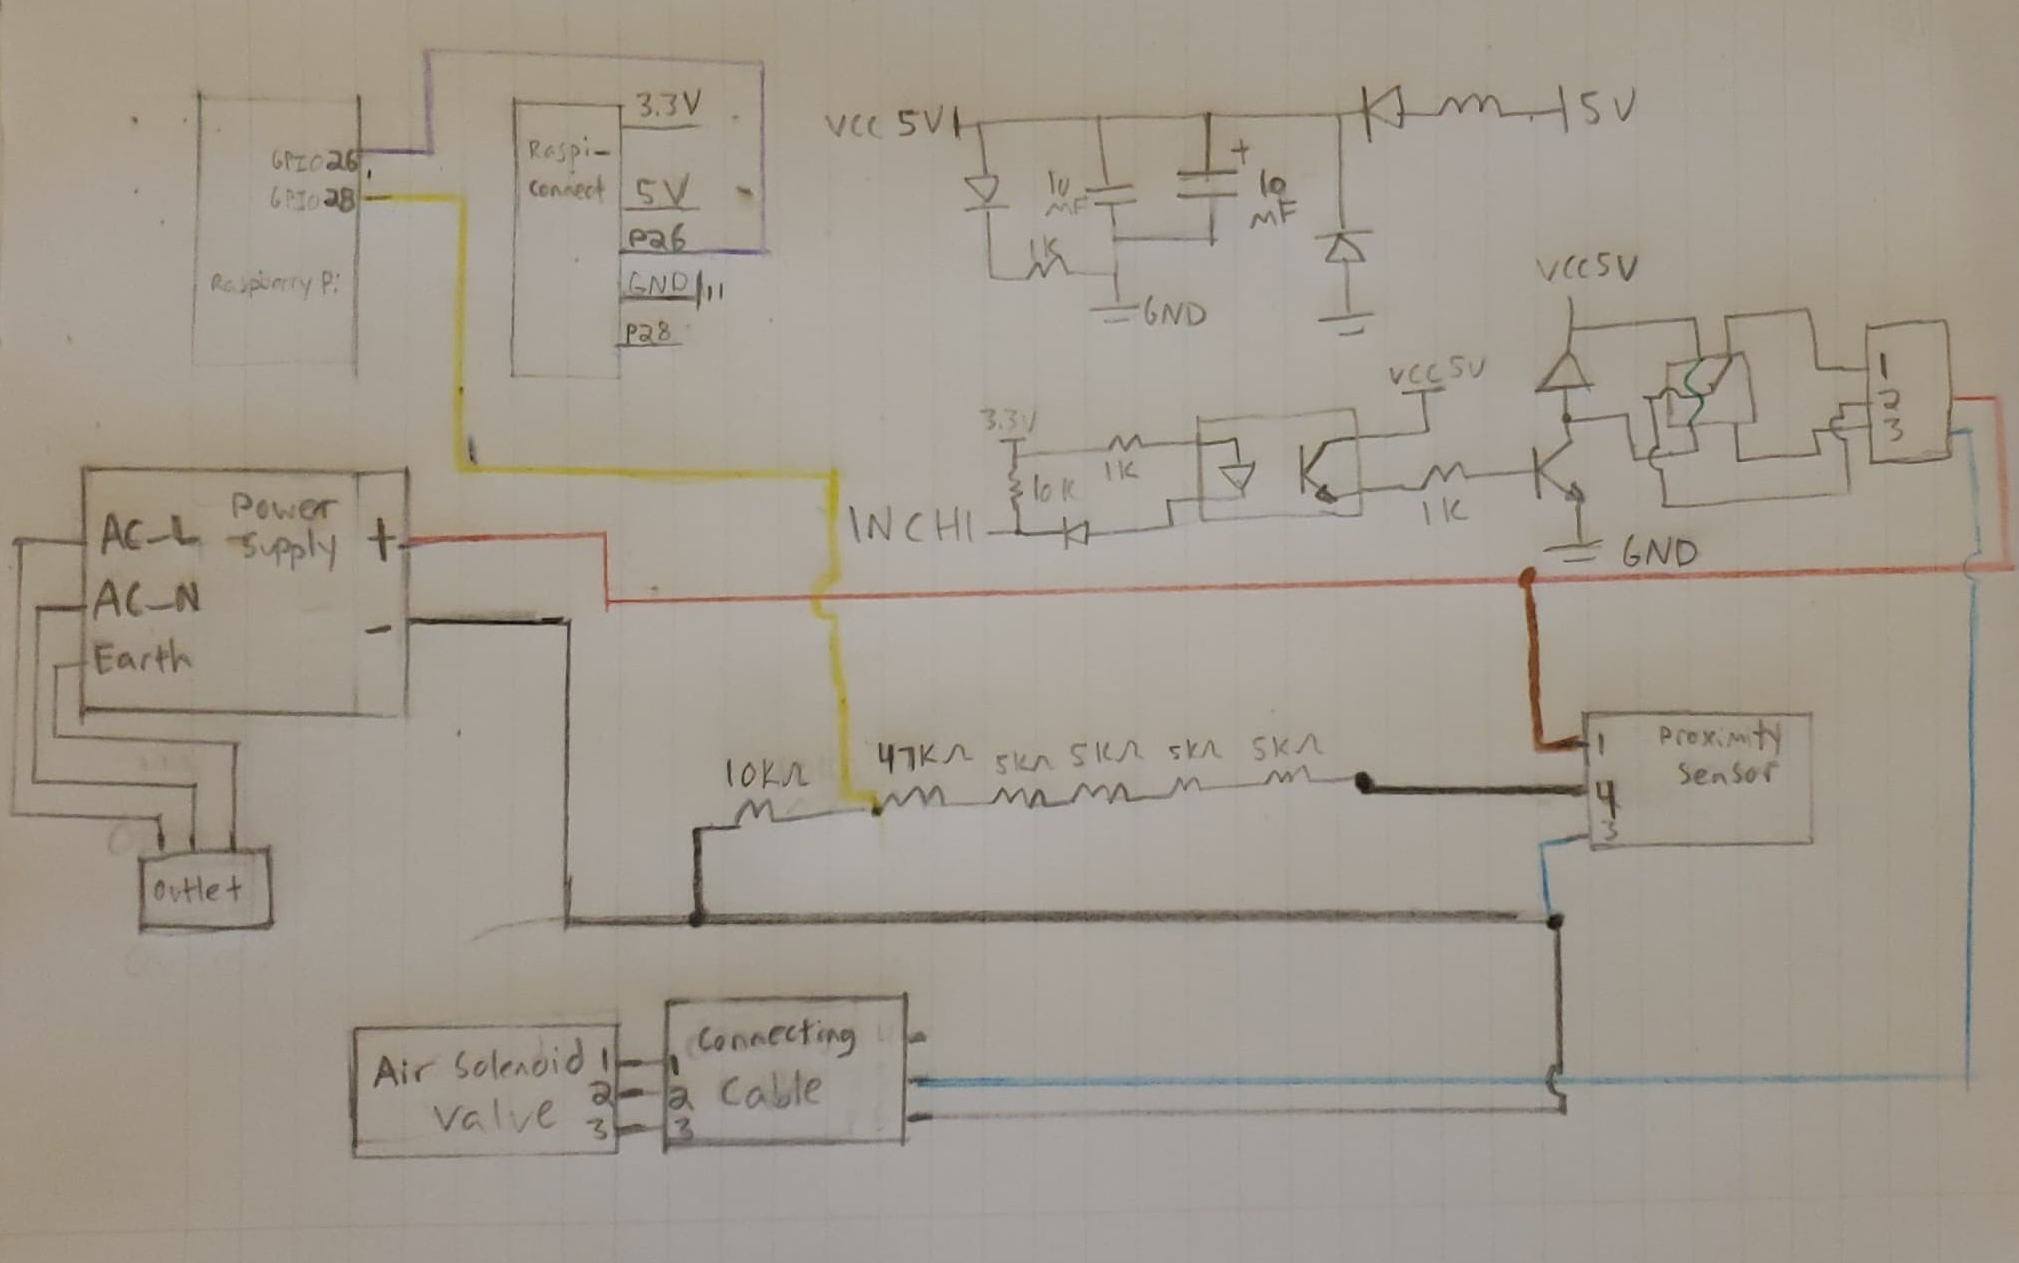 GPIO26
GPIO28
Raspberry Pi
Raspi-
connect
3.3V
5V
P26
GND
P28
VCC 5V
5V
1u
MF
+
10
MF
1K
GND
VCC5V
VCC 5V
3.3V
10K
1K
INCH1
1K
GND
1
2
3
Power
Supply
AC-L
AC-N
Earth
+
-
Outlet
10KΩ
47KΩ
5KΩ
5KΩ
5KΩ
5KΩ
1
4
3
Proximity
Sensor
Air Solenoid
Valve
1
2
3
1
2
3
Connecting
Cable